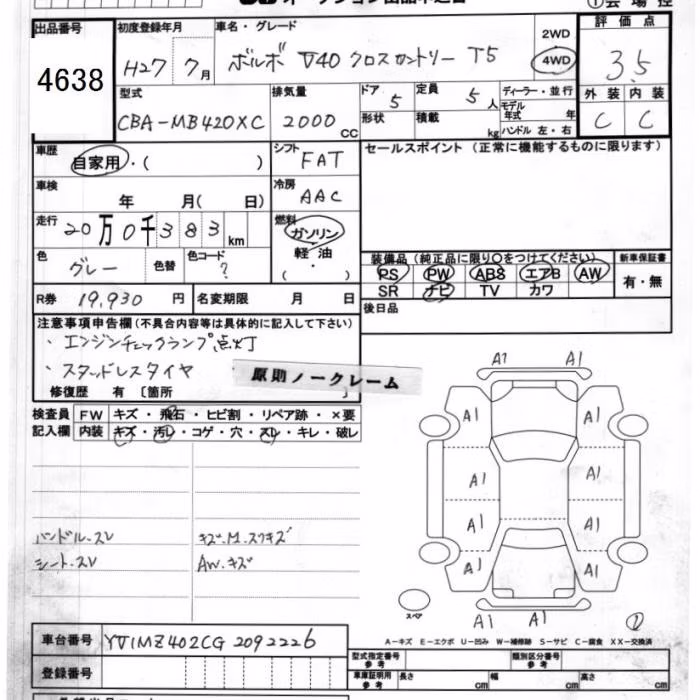 ① 会場控
出品番号 初度登録年月 車名・グレード 評価点
4638 H27 7月 ボルボ V40 クロスカントリー T5 2WD 4WD 3.5
型式 排気量 ドア 定員 ディーラー・並行 外装 内装
CBA-MB420XC 2000cc 5 5人 モデル年式 年 C C
形状 積載 kg ハンドル 左・右
車歴 自家用・( ) シフト FAT セールスポイント (正常に機能するものに限ります)
車検 年 月( 日) 冷房 AAC
走行 20万0千383km 燃料 ガソリン
軽油
( ・ )
色 グレー 色替 色コード ?
装備品 (純正品に限り○をつけてください) 新車保証書
PS PW ABS エアB AW 有・無
SR ナビ TV カワ
R券 19,930円 名変期限 月 日 後日品
注意事項申告欄 (不具合内容等は具体的に記入して下さい)
・エンジンチェックランプ点灯
・スタッドレスタイヤ
原則ノークレーム
修復歴 有 〔箇所 〕
検査員 FW キズ・飛石・ヒビ割・リペア跡・×要
記入欄 内装 キズ・汚レ・コゲ・穴・スレ・キレ・破レ
A1 A1
A1 A1
A1 A1
A1 A1
A1 A1
A1 A1
ハンドル.スレ キズ.M.スリキズ
シート.スレ AW.キズ
スペア
A-キズ E-エクボ U-凹み W-補修跡 S-サビ C-腐食 XX-交換済
車台番号 YV1MZ402CG 2092226
登録番号
型式指定番号 参考 類別区分番号 参考
車庫証明用 参考 長さ cm 幅 cm 高さ cm